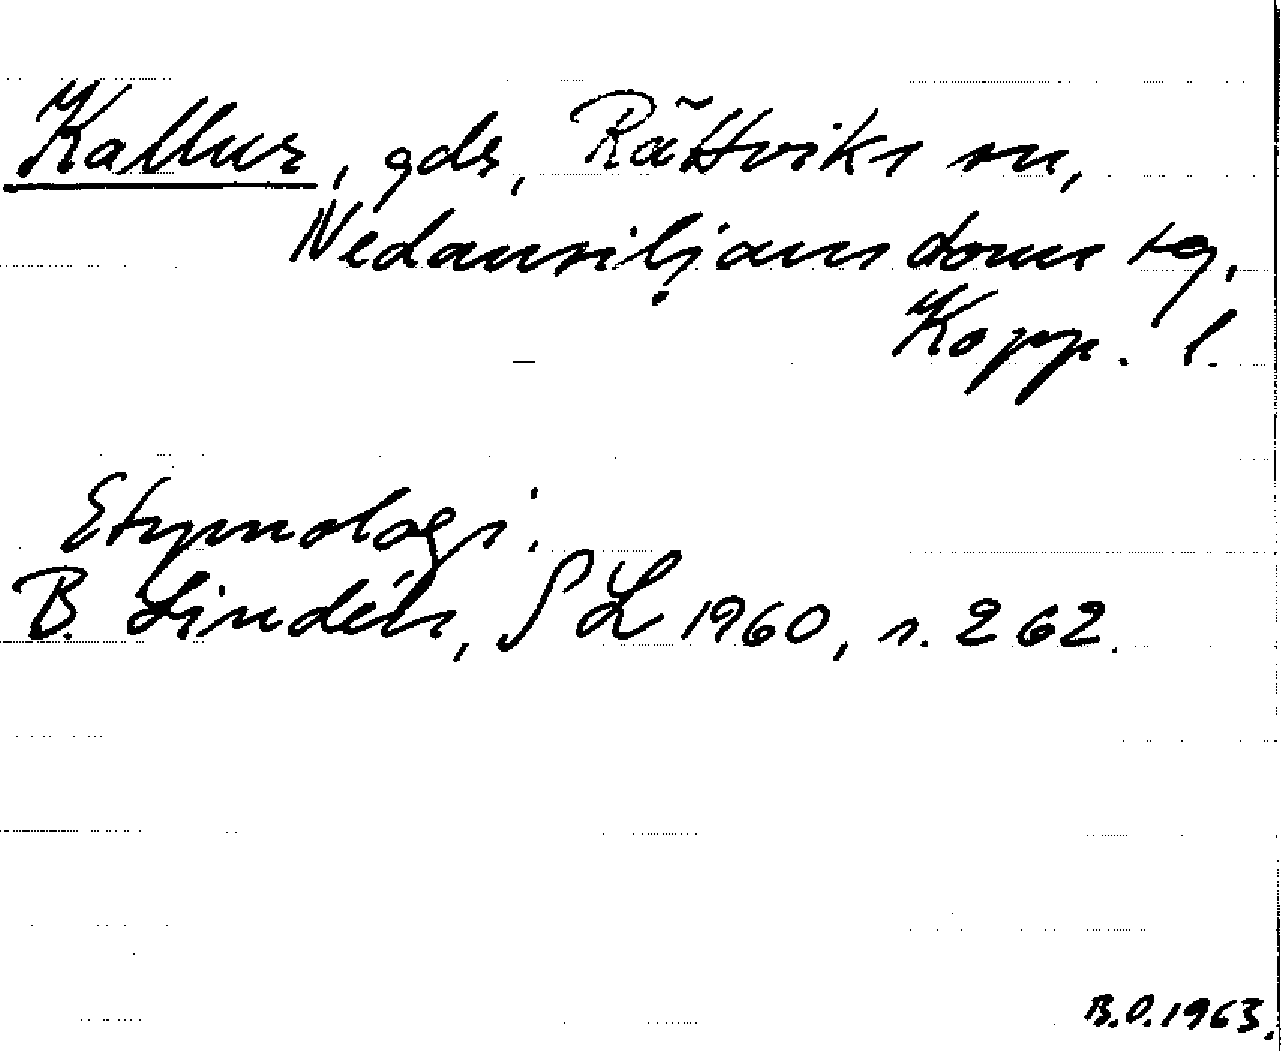 Kallur, gdr, Rättviks sn,
Nedansiljans doms tg,
Kopp. l.
Etymologi:
B. Lindén, SL 1960, s. 262.
B.O. 1963.